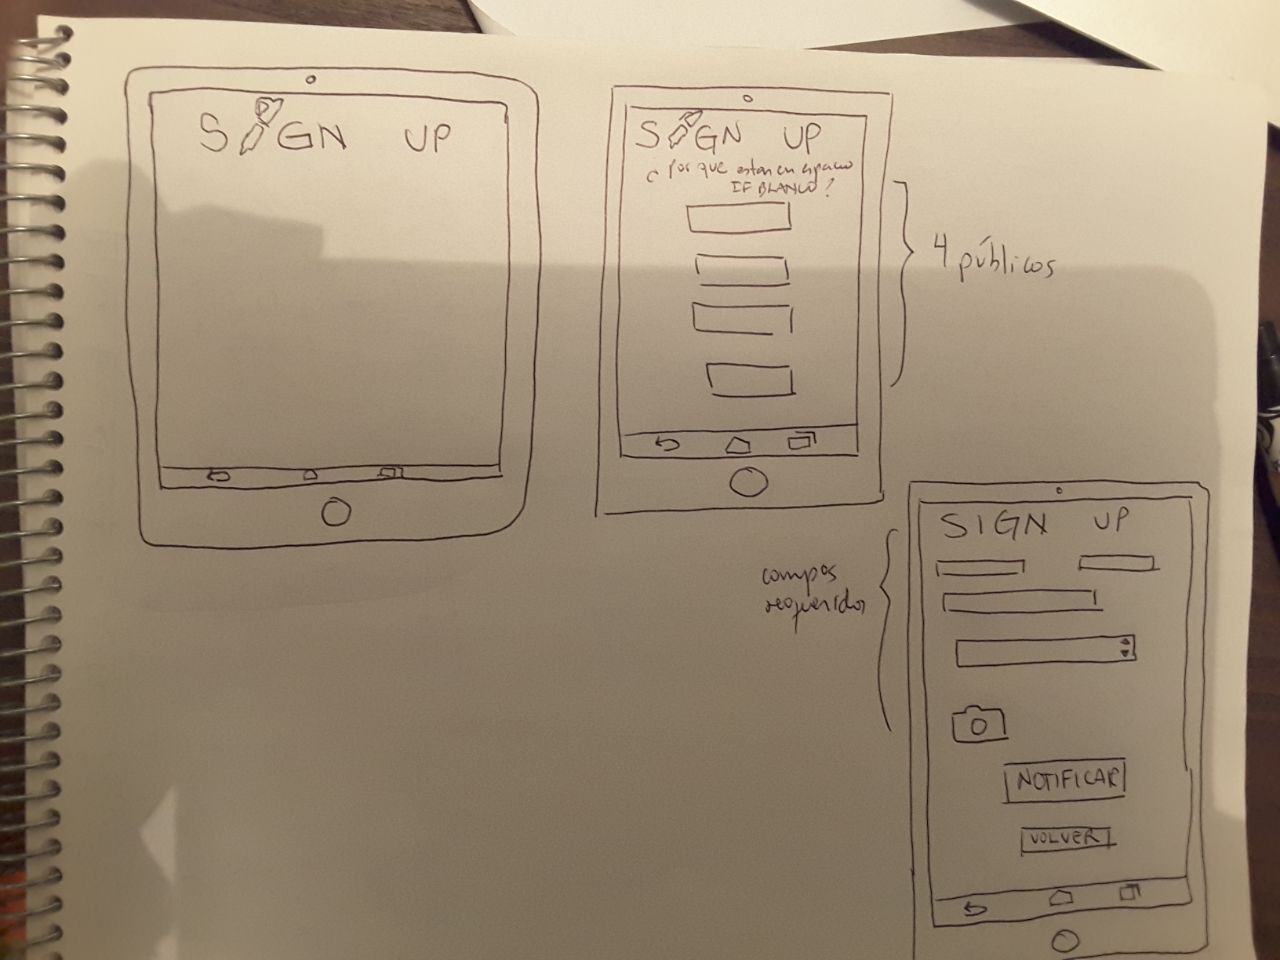 SIGN UP
SIGN UP
¿Por que estas en espacio
EN BLANCO?
4 públicos
SIGN UP
campos
requeridos
NOTIFICAR
VOLVER